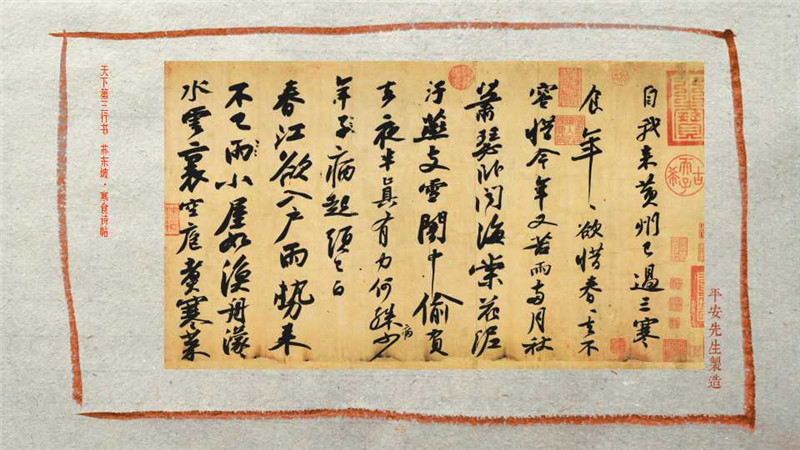 自我来黄州已過三寒
食年〻欲惜春〻去不
容惜今年又苦雨兩月秋
蕭瑟卧聞海棠花泥
汙燕支雪闇中偷負
去夜半真有力何殊少
病
年子病起頭已白
春江欲入户雨勢来
不已雨小屋如漁舟濛〻
水雲裏空庖煮寒菜
古希天子
平安先生製造
天下第三行书 苏东坡·寒食诗帖